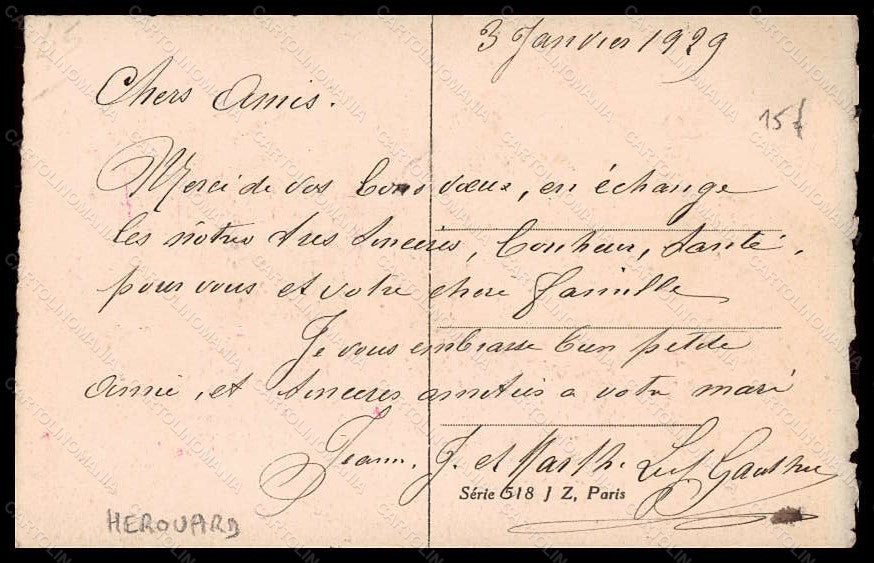 3 Janvier 1929
Chers Amis.
15f
Merci de vos Bons vœux, en échange
les nôtres tres sinceres, Bonheur, Santé,
pour vous et votre chere famille
Je vous embrasse bien petite
amie, et sinceres amitiés a votre mari
Jeann. J. et Marth. Gauthier
Série 518 J Z, Paris
HEROUARD
CARTOLINOMANIA